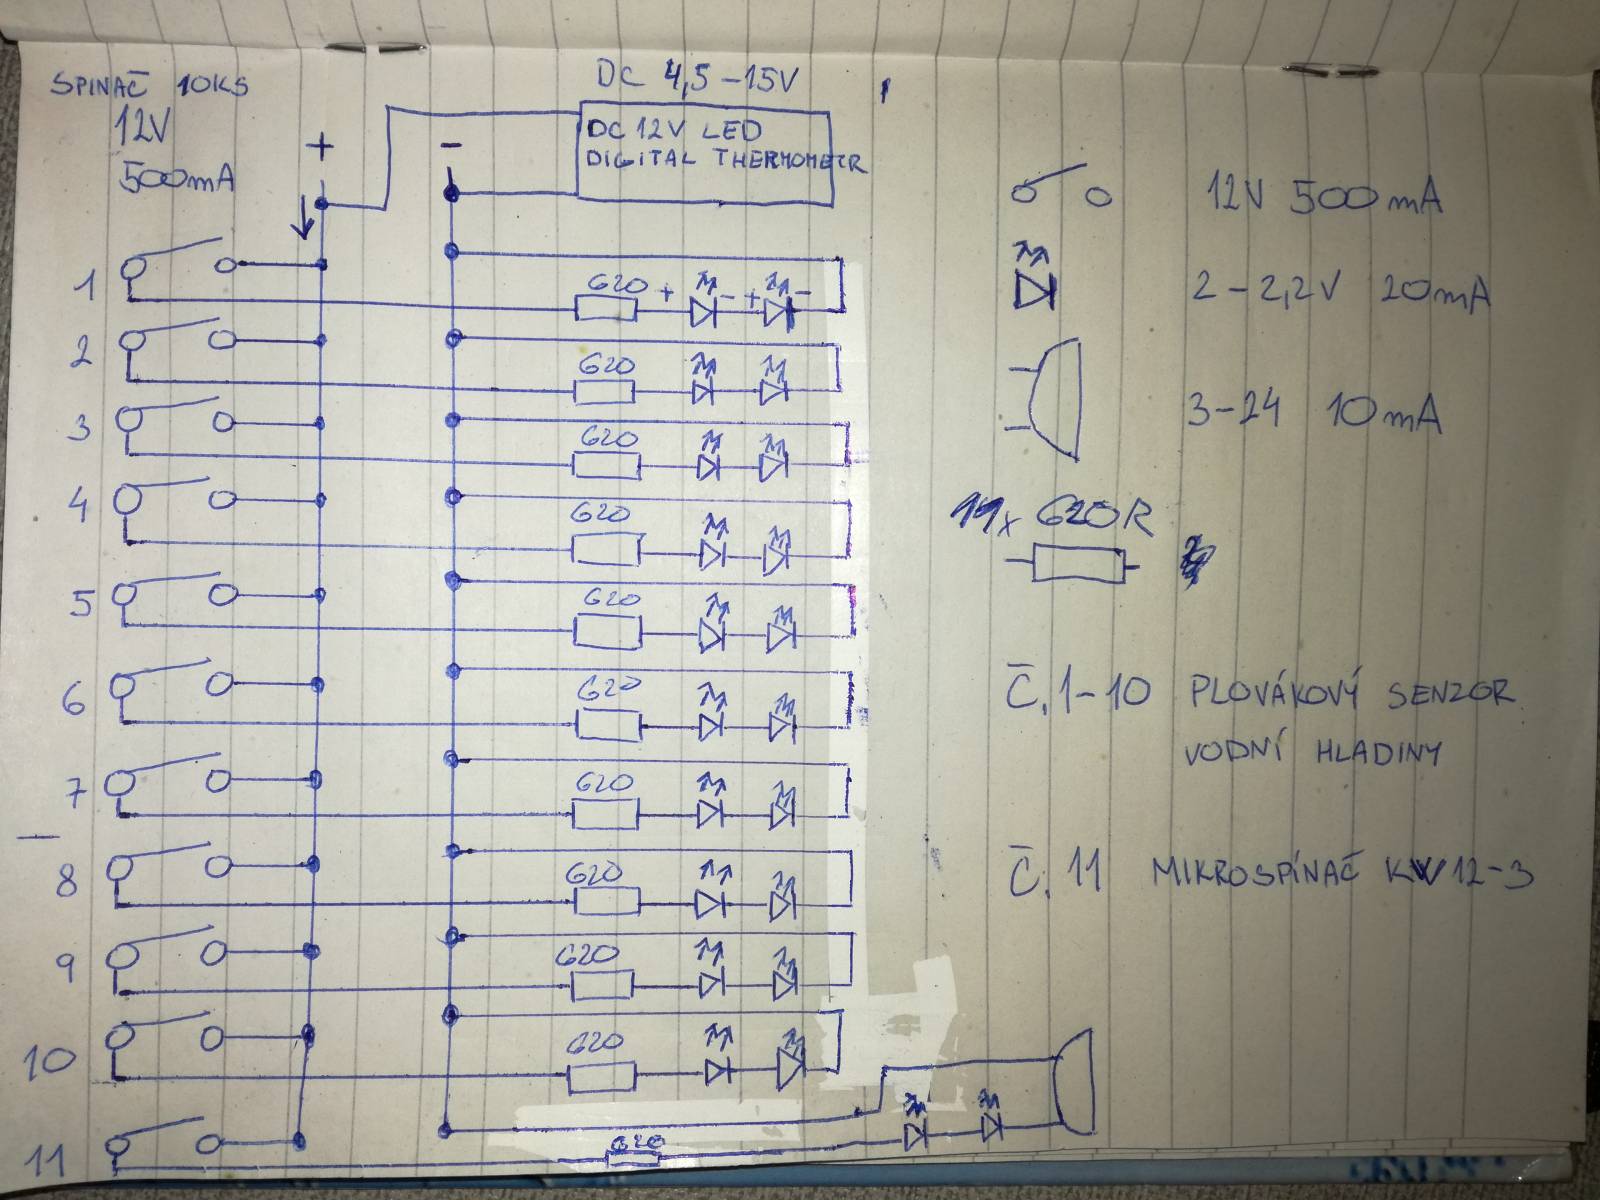 SPINAČ 10KS
12V
500mA
+
-
DC 4,5-15V
DC 12V LED
DIGITAL THERMOMETR
1
620
+
-
+
-
2
620
3
620
4
620
5
620
6
620
7
620
8
620
9
620
10
620
11
620
12V 500mA
2-2,2V 20mA
3-24 10mA
11x 620R
Č. 1-10 PLOVÁKOVÝ SENZOR
VODNÍ HLADINY
Č. 11 MIKROSPÍNAČ KW12-3